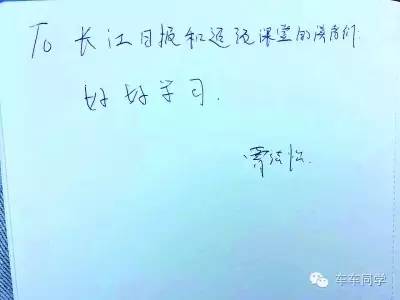 To 长江日报和逗逗课堂的读者们
好好学习.
车车同学